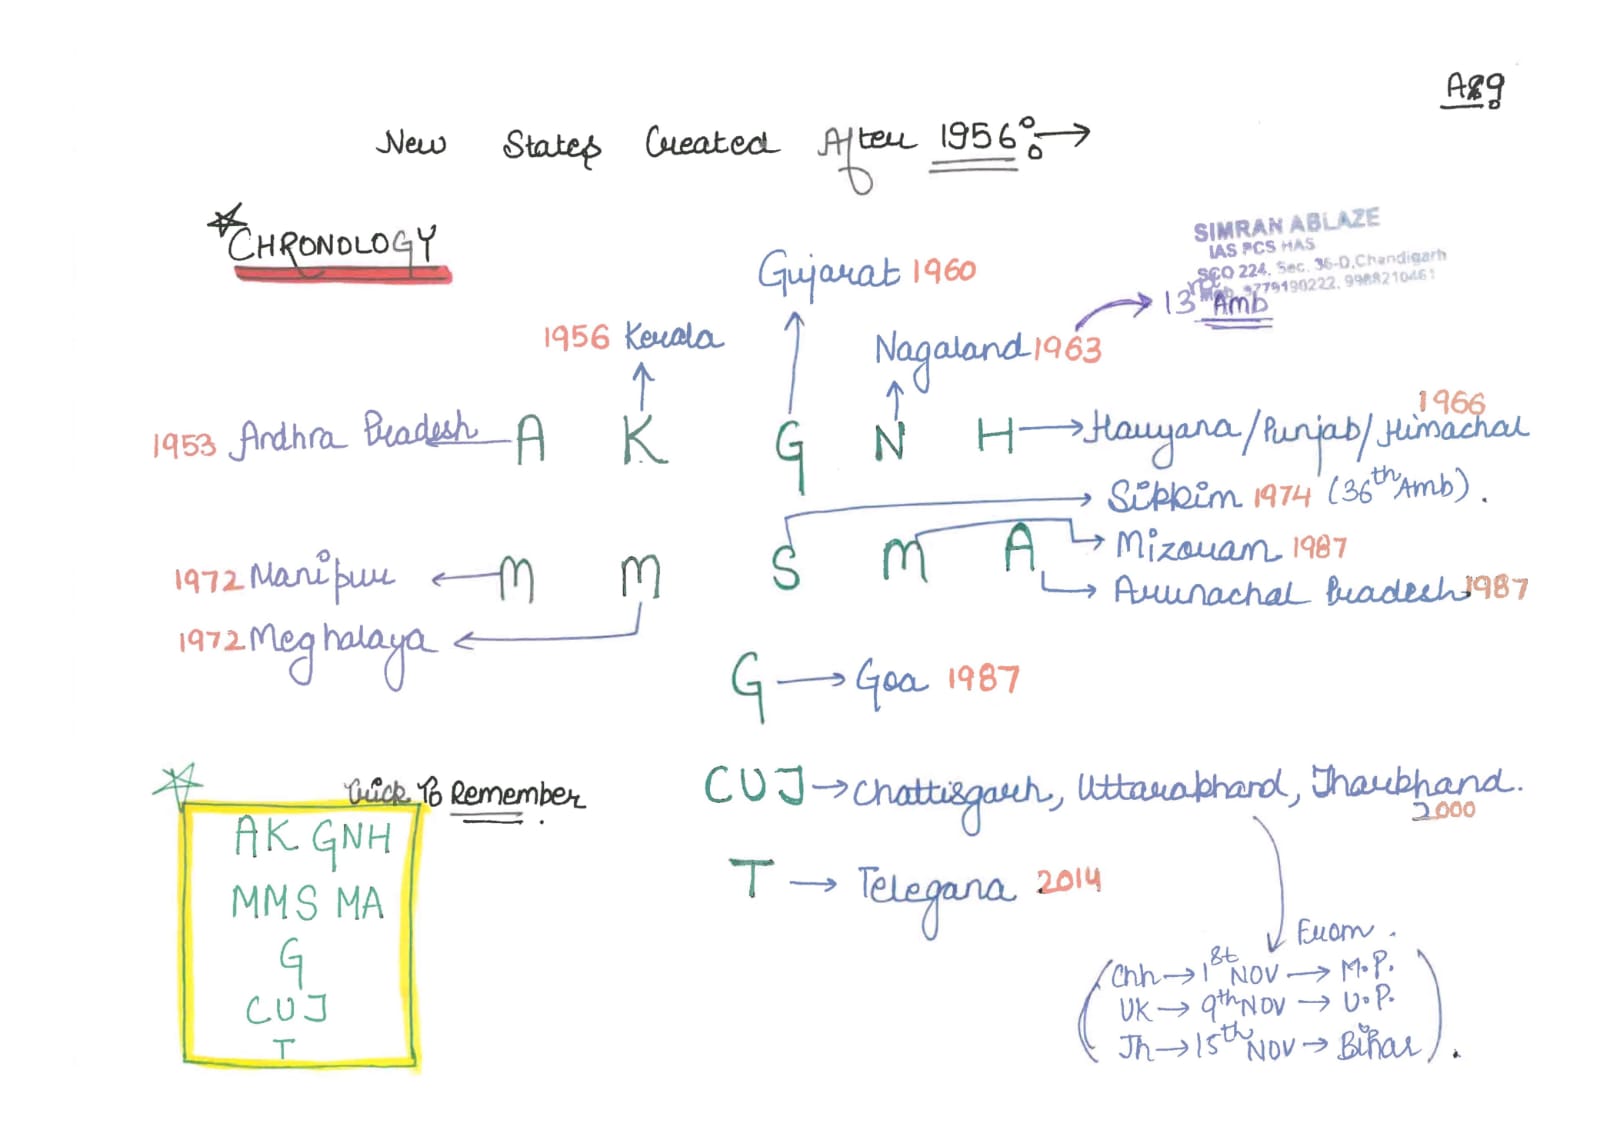 A89
New States Created After 1956:→
CHRONOLOGY
SIMRAN ABLAZE
IAS PCS HAS
SCO 224, Sec. 36-D, Chandigarh
9779190222, 9988210461
Gujarat 1960
13th Amb
1956 Kerala
Nagaland 1963
1966
1953 Andhra Pradesh ← A K G N H → Haryana/Punjab/Himachal
Sikkim 1974 (36th Amb).
1972 Manipur ← M M S M A → Mizoram 1987
Arunachal Pradesh 1987
1972 Meghalaya
G → Goa 1987
Trick To Remember
CUJ → Chattisgarh, Uttarakhand, Jharkhand.
2000
AK GNH
MMS MA
G
CUJ
T
T → Telegana 2014
From.
(Chh → 1st NOV → M.P.
UK → 9th NOV → U.P.
Jh → 15th NOV → Bihar).